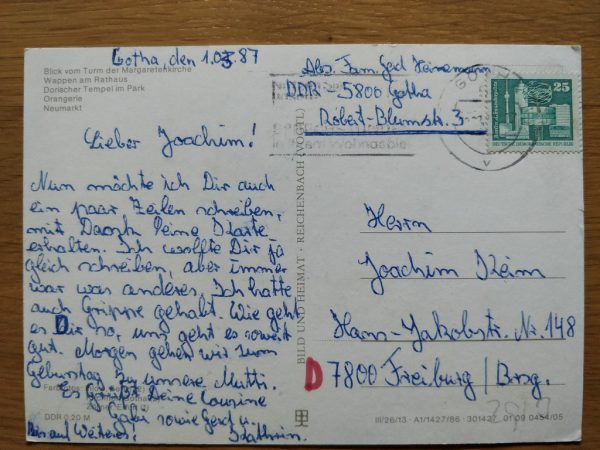 Gotha, den 1.03.87
Blick vom Turm der Margaretenkirche
Wappen am Rathaus
Dorischer Tempel im Park
Orangerie
Neumarkt
Lieber Joachim!
Nun möchte ich Dir auch
ein paar Zeilen schreiben,
mit Dank Deine Karte
erhalten. Ich wollte Dir ja
gleich schreiben, aber immer
war was anderes. Ich hatte
auch Grippe gehabt. Wie geht
es Dir so, uns geht es soweit
gut. Morgen gehen wir zum
Geburtstag zu unsere Mutti.
Es grüßt Deine Cousine
sowie Gerd u.
Bis auf Weiteres! Kathrin.
DDR 0,20 M
BILD UND HEIMAT · REICHENBACH (VOGTL)
Abs. Fam. Gerd Heinemann
DDR - 5800 Gotha
Robert-Blumstr. 3
25
DEUTSCHE DEMOKRATISCHE REPUBLIK
Herrn
Joachim Keim
Hans-Jakobstr. Nr. 148
D 7800 Freiburg / Brsg.
III/26/13 · A1/1427/86 · 301427 01 09 0464/05